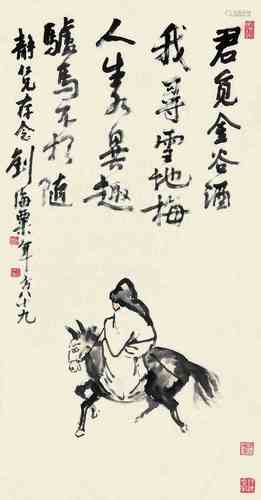 君覓金谷酒
我尋雪地梅
人生各異趣
驢馬不相隨
靜兄存念
劉海粟年方八十九